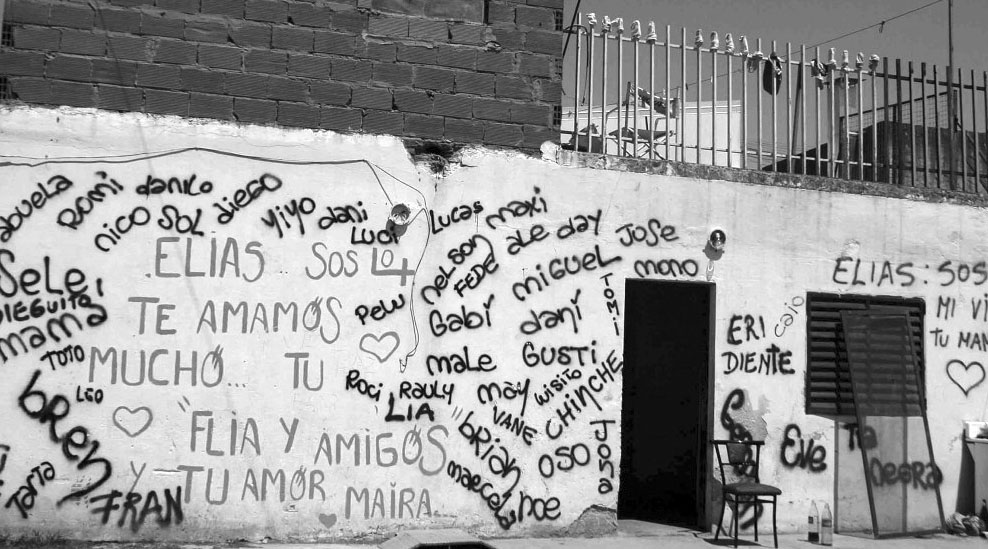 abuela
Romi
danilo
nico
SOL
diego
yiyo
dani
Luci
Lucas
maxi
nelson
FEDE
ale
day
Jose
mono
miguel
Tomi
Sele
DIEGUITO
mama
TOTO
Leo
bren
Tata
FRAN
.ELIAS.. SOS LO +
TE AMAMOS
MUCHO... TU
"FLIA Y AMIGOS"
Y TU AMOR MAIRA..
Pelu
Gabi
dani
male
GUSTi
Roci
RAULY
LIA
may
wisito
VANE
CHINCHE
brian
OSO
Jona
marcelo
noe
ERI
caio
DIENTE
Eve
Tia
Negra
ELIAS: SOS
MI VI
TU MAM